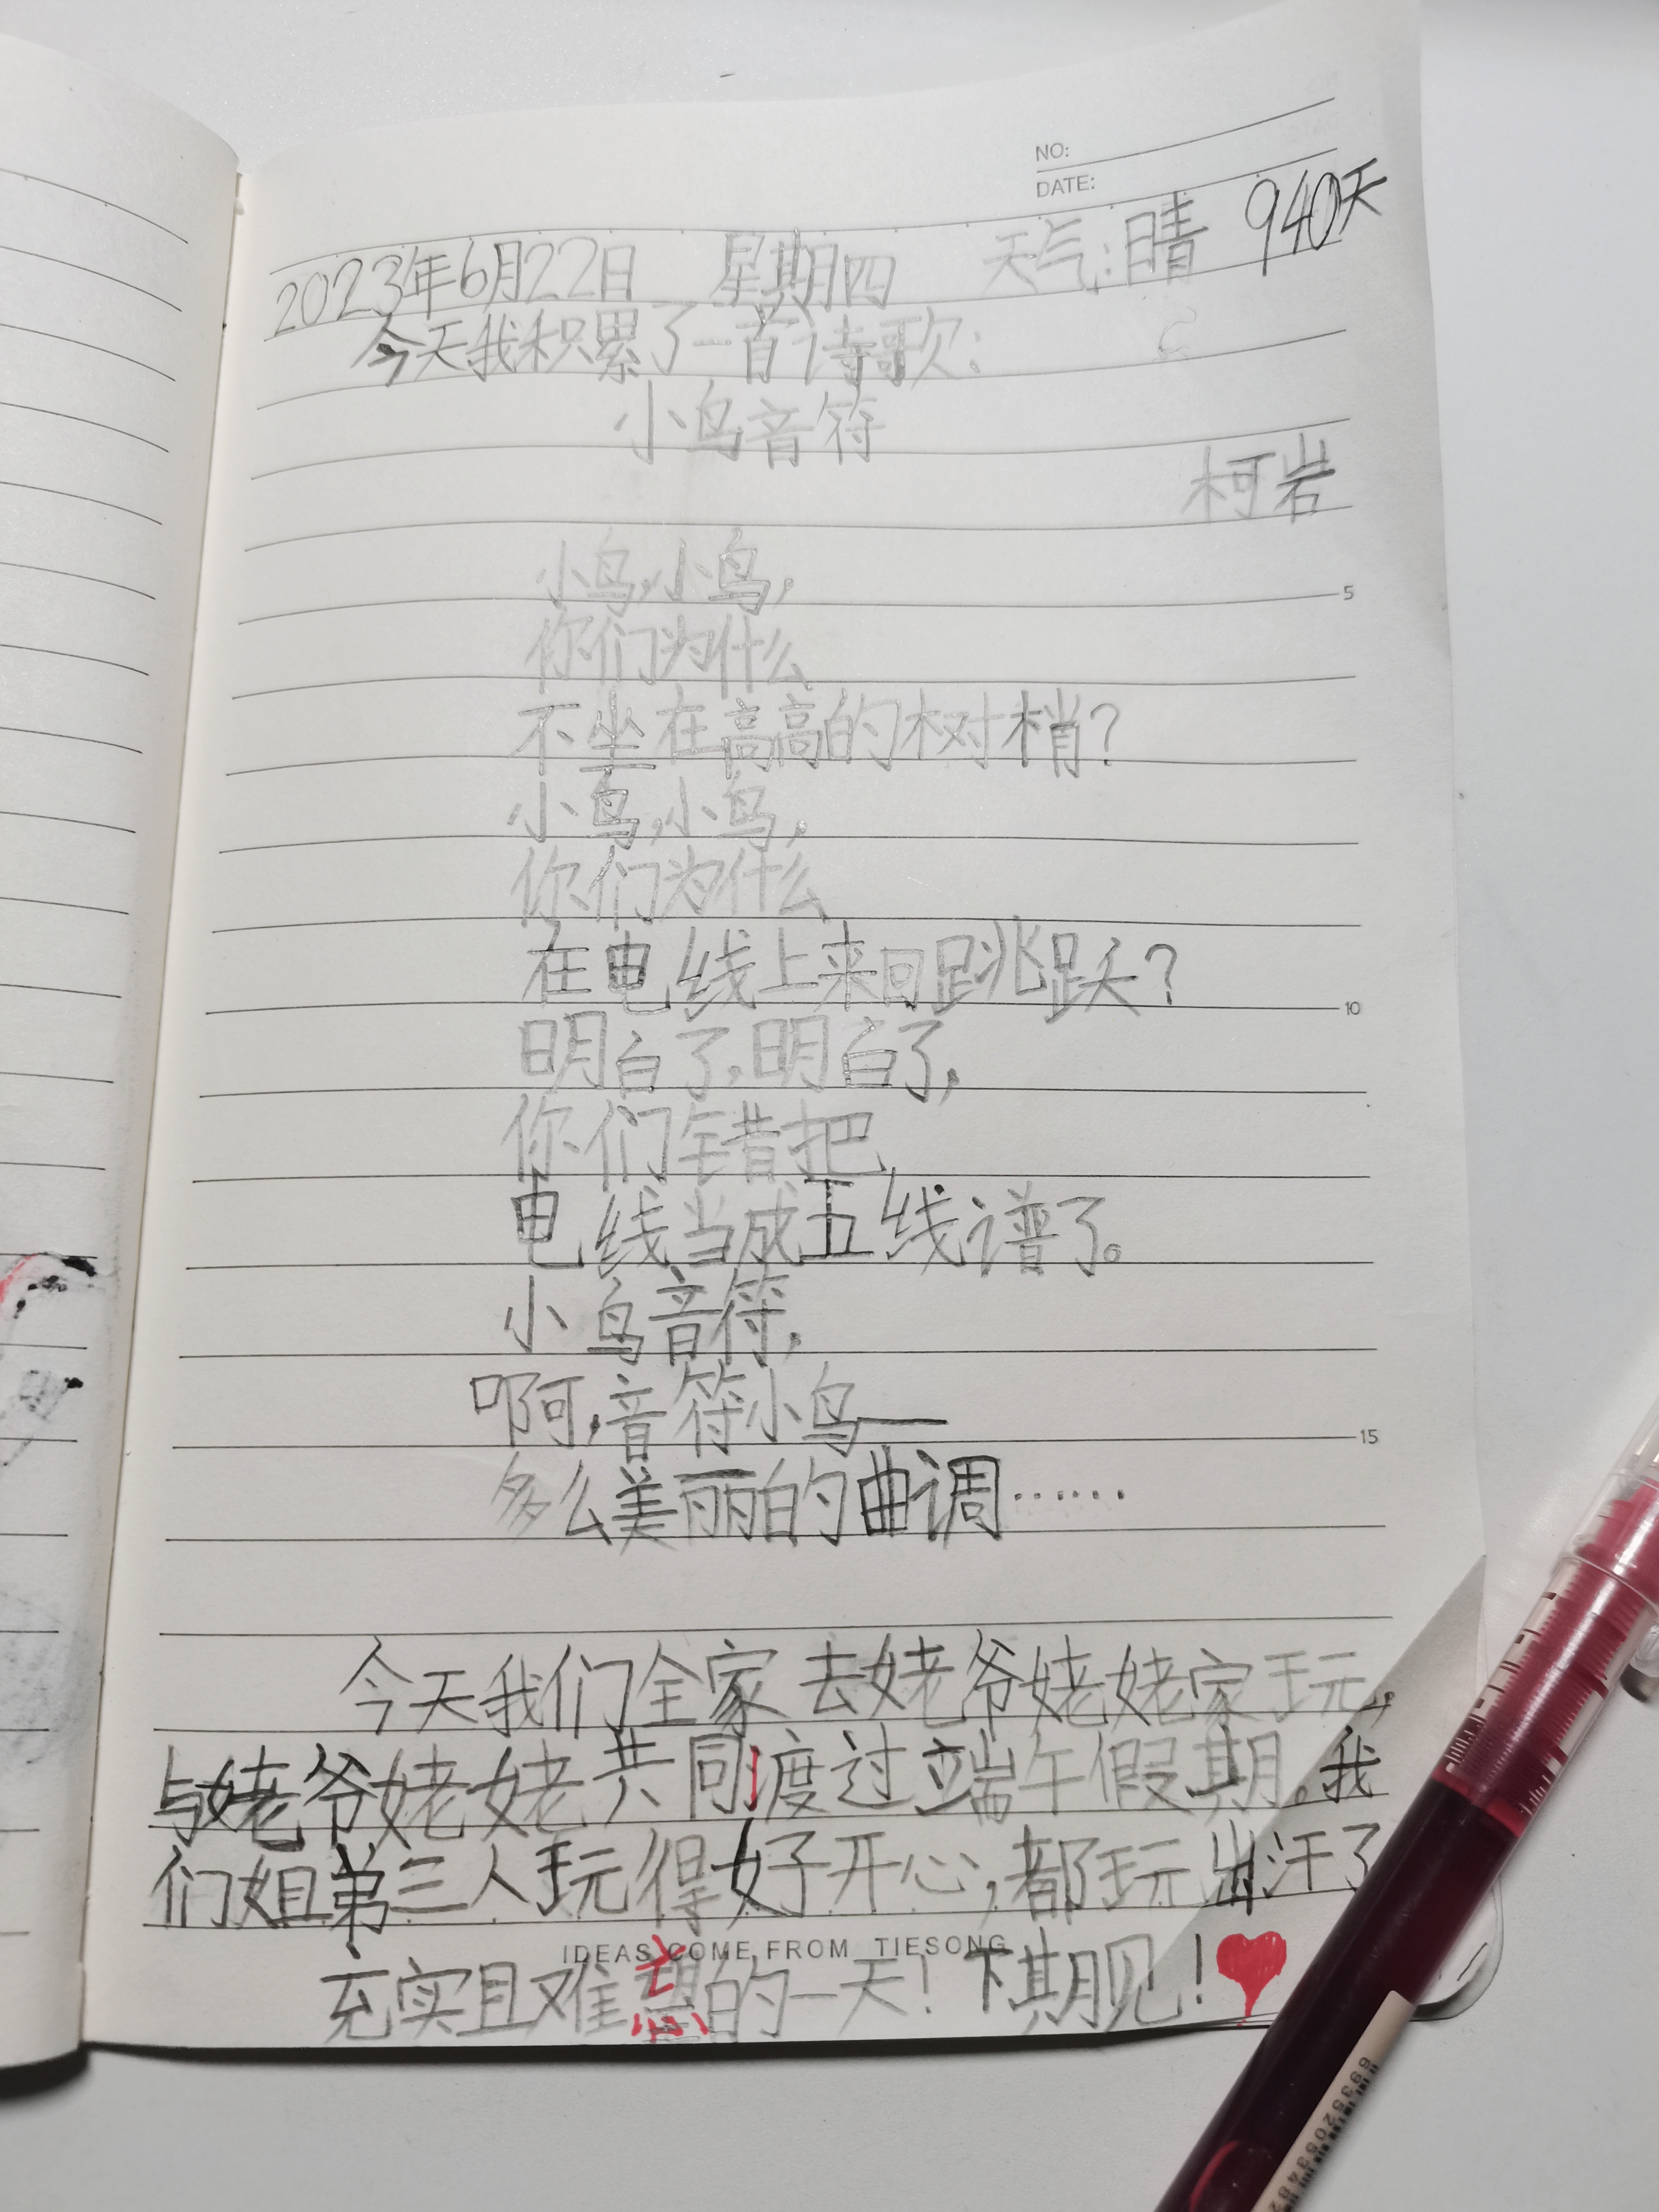 NO:
DATE:
940天
2023年6月22日 星期四 天气:晴
今天我积累了一首诗歌:
小鸟音符
柯岩
小鸟,小鸟,
你们为什么
不坐在高高的树梢?
小鸟,小鸟,
你们为什么
在电线上来回跳跃?
明白了,明白了,
你们错把
电线当成五线谱了。
小鸟音符,
啊,音符小鸟——
多么美丽的曲调……
今天我们全家去姥爷姥姥家玩,
与姥爷姥姥共同度过端午假期。我
们姐弟三人玩得好开心,都玩出汗了
IDEAS COME FROM TIESONG
充实且难忘的一天!下期见!
5
10
15